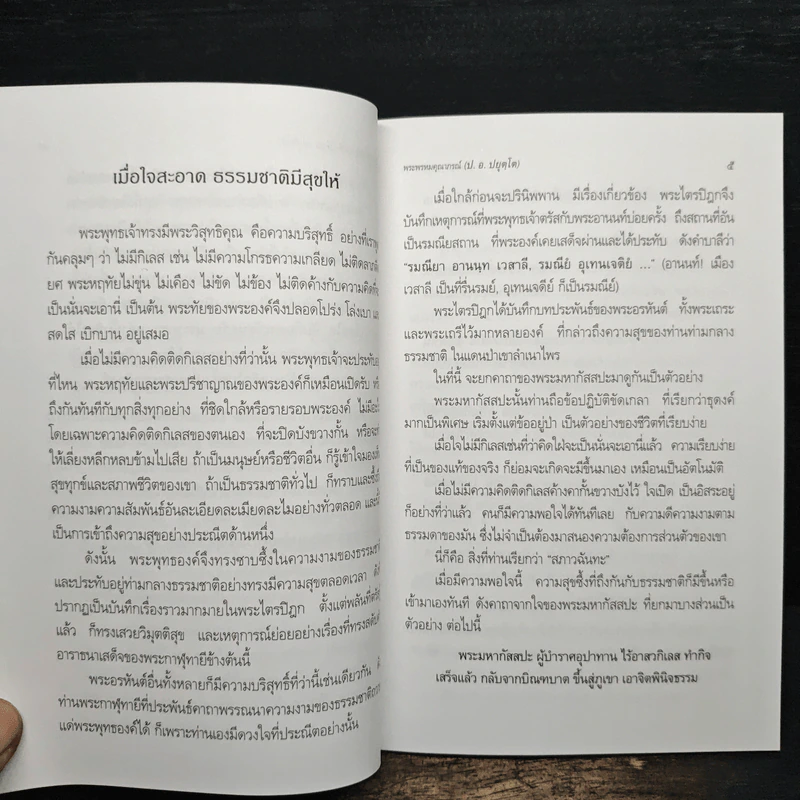 เมื่อใจสะอาด ธรรมชาติมีสุขให้
พระพุทธเจ้าทรงมีพระวิสุทธิคุณ คือความบริสุทธิ์ อย่างที่เรา
กันคลุมๆ ว่า ไม่มีกิเลส เช่น ไม่มีความโกรธความเกลียด ไม่ติดลาภ
ยศ พระหฤทัยไม่ขุ่น ไม่เคือง ไม่ขัด ไม่ข้อง ไม่ติดค้างกับความคิดที่จะ
เป็นนั่นจะเอานี่ เป็นต้น พระทัยของพระองค์จึงปลอดโปร่ง โล่งเบา
สดใส เบิกบาน อยู่เสมอ
เมื่อไม่มีความคิดติดกิเลสอย่างที่ว่านั้น พระพุทธเจ้าจะประทับ
ที่ไหน พระหฤทัยและพระปรีชาญาณของพระองค์ก็เหมือนเปิดรับ
ถึงกันทันทีกับทุกสิ่งทุกอย่าง ที่ชิดใกล้หรือรายรอบพระองค์ ไม่มี
โดยเฉพาะความคิดติดกิเลสของตนเอง ที่จะปิดบังขวางกั้น หรือ
ให้เลี่ยงหลีกหลบข้ามไปเสีย ถ้าเป็นมนุษย์หรือชีวิตอื่น ก็รู้เข้าใจมองเห็น
สุขทุกข์และสภาพชีวิตของเขา ถ้าเป็นธรรมชาติทั่วไป ก็ทราบและซึ้งถึง
ความงามความสัมพันธ์อันละเอียดละเมียดละไมอย่างทั่วตลอด และ
เป็นการเข้าถึงความสุขอย่างประณีตด้านหนึ่ง
ดังนั้น พระพุทธองค์จึงทรงซาบซึ้งในความงามของธรรมชาติ
และประทับอยู่ท่ามกลางธรรมชาติอย่างทรงมีความสุขตลอดเวลา
ปรากฏเป็นบันทึกเรื่องราวมากมายในพระไตรปิฎก ตั้งแต่พลันที่ตรัสรู้
แล้ว ก็ทรงเสวยวิมุตติสุข และเหตุการณ์ย่อยอย่างเรื่องที่ทรงสดับ
อาราธนาเสด็จของพระกาฬุทายีข้างต้นนี้
พระอรหันต์อื่นทั้งหลายก็มีความบริสุทธิ์ที่ว่านี้เช่นเดียวกัน
ท่านพระกาฬุทายีที่ประพันธ์คาถาพรรณนาความงามของธรรมชาติ
แด่พระพุทธองค์ได้ ก็เพราะท่านเองมีดวงใจที่ประณีตอย่างนั้น
พระพรหมคุณาภรณ์ (ป. อ. ปยุตฺโต) ๕
เมื่อใกล้ก่อนจะปรินิพพาน มีเรื่องเกี่ยวข้อง พระไตรปิฎกจึง
บันทึกเหตุการณ์ที่พระพุทธเจ้าตรัสกับพระอานนท์บ่อยครั้ง ถึงสถานที่อัน
เป็นรมณียสถาน ที่พระองค์เคยเสด็จผ่านและได้ประทับ ดังคำบาลีว่า
“รมณียา อานนฺท เวสาลี, รมณียํ อุเทนเจติยํ ...” (อานนท์! เมือง
เวสาลี เป็นที่รื่นรมย์, อุเทนเจดีย์ ก็เป็นรมณีย์)
พระไตรปิฎกได้บันทึกบทประพันธ์ของพระอรหันต์ ทั้งพระเถระ
และพระเถรีไว้มากหลายองค์ ที่กล่าวถึงความสุขของท่านท่ามกลาง
ธรรมชาติ ในแดนป่าเขาลำเนาไพร
ในที่นี้ จะยกคาถาของพระมหากัสสปะมาดูกันเป็นตัวอย่าง
พระมหากัสสปะนั้นท่านถือข้อปฏิบัติขัดเกลา ที่เรียกว่าธุดงค์
มากเป็นพิเศษ เริ่มตั้งแต่ข้ออยู่ป่า เป็นตัวอย่างของชีวิตที่เรียบง่าย
เมื่อใจไม่มีกิเลสเช่นที่ว่าคิดใฝ่จะเป็นนั่นจะเอานี่แล้ว ความเรียบง่าย
ที่เป็นของแท้ของจริง ก็ย่อมจะเกิดจะมีขึ้นมาเอง เหมือนเป็นอัตโนมัติ
เมื่อไม่มีความคิดติดกิเลสค้างคากั้นขวางบังไว้ ใจเปิด เป็นอิสระอยู่
ก็อย่างที่ว่าแล้ว คนก็มีความพอใจได้ทันทีเลย กับความดีความงามตาม
ธรรมดาของมัน ซึ่งไม่จำเป็นต้องมาสนองความต้องการส่วนตัวของเขา
นี่ก็คือ สิ่งที่ท่านเรียกว่า “สภาวฉันทะ”
เมื่อมีความพอใจนี้ ความสุขซึ้งที่ถึงกันกับธรรมชาติก็มีขึ้นหรือ
เข้ามาเองทันที ดังคาถาจากใจของพระมหากัสสปะ ที่ยกมาบางส่วนเป็น
ตัวอย่าง ต่อไปนี้
พระมหากัสสปะ ผู้ปราศอุปาทาน ไร้อาสวกิเลส ทำกิจ
เสร็จแล้ว กลับจากบิณฑบาต ขึ้นสู่ภูเขา เอาจิตพินิจธรรม